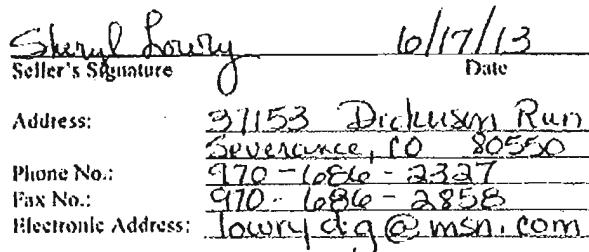 Sheryl Lowry 6/17/13
Seller's Signature Date
Address: 37153 Dickinson Run
Severance, CO 80550
Phone No.: 970-686-2327
Fax No.: 970-686-2858
Electronic Address: lowrydg@msn.com